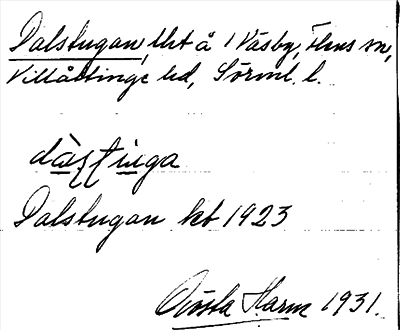 Dalstugan, lht å 1 Väsby, Flens sn,
Villåttinge hd, Sörml. l.
dàlstuga
Dalstugan kb 1923
Gösta Harm 1931.